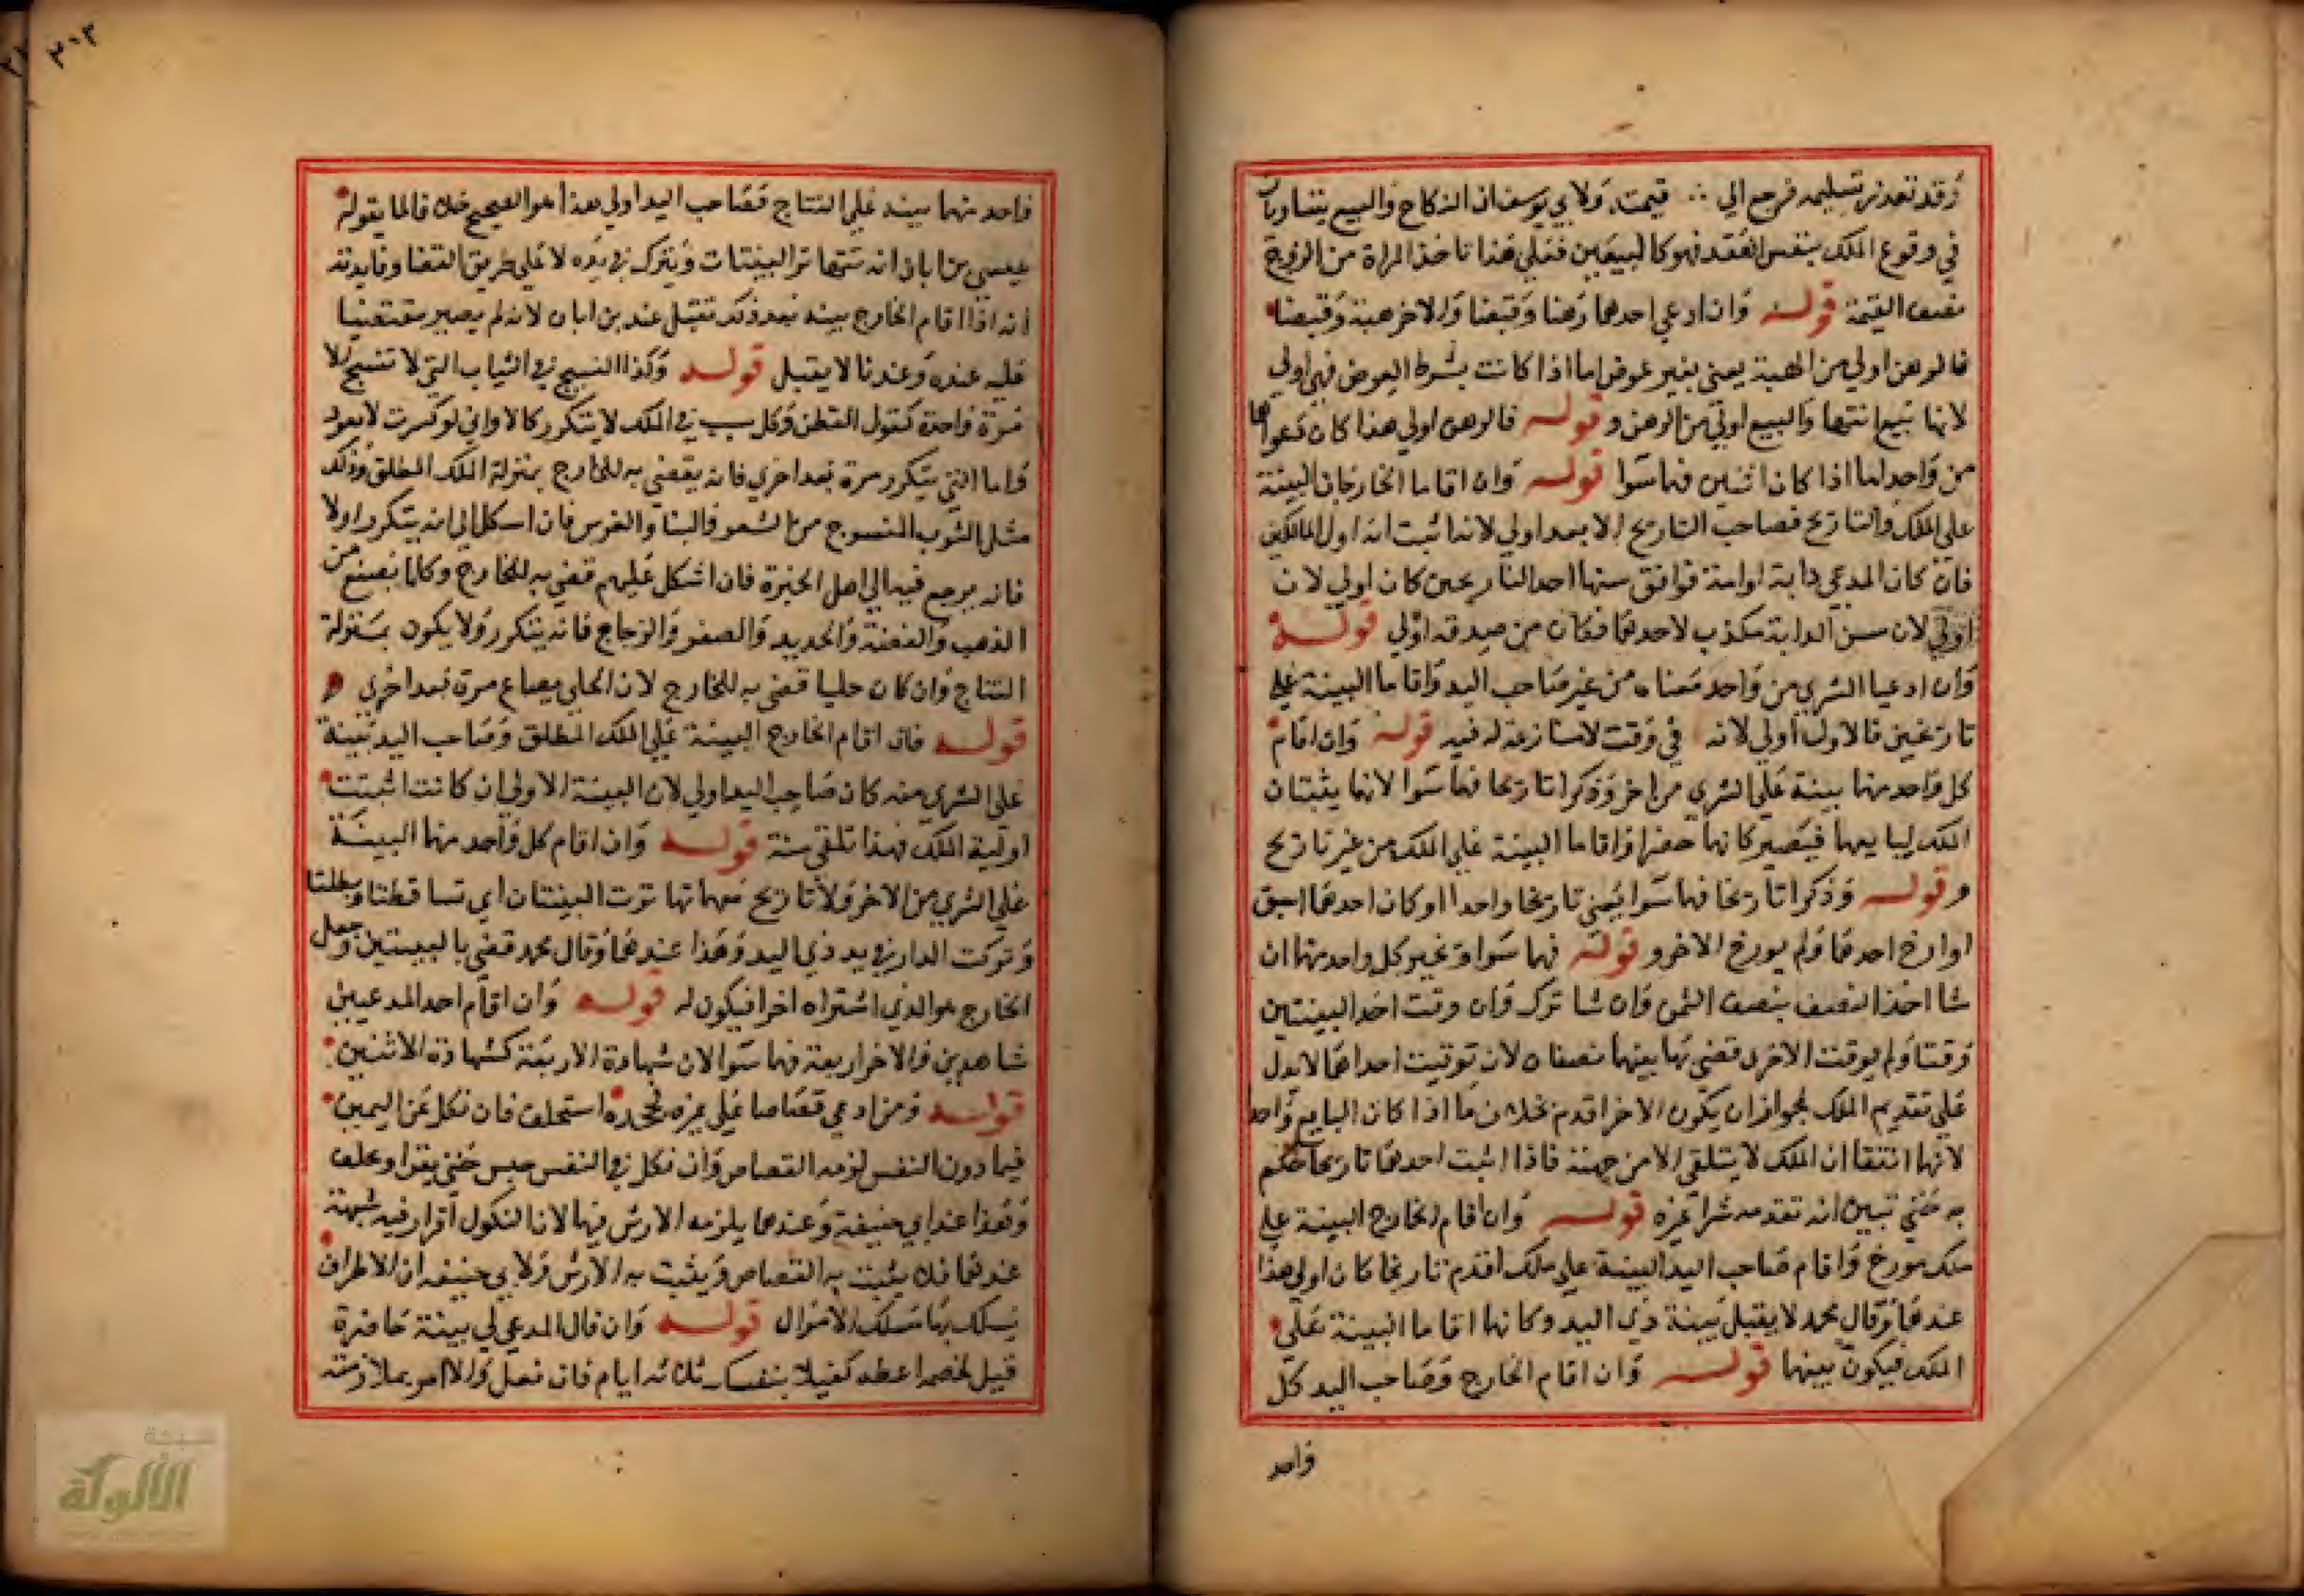 وقد تعذر تسليمه فرجع الي ∴ قيمته ولابي يوسف ان النكاح والبيع يتساويان
في وقوع الملك بنفس العقد فهو كالبيعين فعلي هذا تاخذ المراة من الزوج
نصف القيمة قوله وان ادعي احدهما رهنا وقبضا والاخر هبة وقبضا
فالرهن اولي من الهبة يعني بغير عوض اما اذا كانت بشرط العوض فهي اولي
لانها بيع انتها والبيع اولي من الرهن وقوله فالرهن اولي هذا كان دعواهما
من واحد اما اذا كان اثنين فهما سوا قوله وان اقاما الخارجان البينة
علي الملك والتاريخ فصاحب التاريخ الابعد اولي لانه اثبت انه اول المالكين
فان كان المدعي دابة او امة فوافق سنها احد التاريخين كان اولي لان
اولي لان سن الدابة مكذب لاحدهما فكان من صدقه اولي قوله
وان ادعيا الشري من واحد معناه من غير صاحب اليد واقاما البينة علي
تاريخين فالاول اولي لانه في وقت لا منازعة له فيه قوله وان اقام
كل واحد منهما بينة علي الشري من اخر وذكرا تاريخا فهما سوا لانهما يثبتان
الملك لبايعهما فيصير كانهما حضرا واقاما البينة علي الملك من غير تاريخ
وقوله وذكرا تاريخا فهما سوا يعني تاريخا واحدا او كان احدهما اسبق
او ارخ احدهما ولم يورخ الاخر وقوله فهما سوا وتخير كل واحد منهما ان
شا اخذ النصف بنصف الثمن وان شا ترك وان وقتت احد البينتين
وقتا ولم يوقت الاخرى قضي بها بينهما نصفان لان توقيت احداهما لا يدل
علي تقديم الملك لجواز ان يكون الاخر اقدم بخلاف ما اذا كان البايع واحد
لانهما اتفقا ان الملك لا يتلقي الا من جهته فاذا اثبت احدهما تاريخا حكم
به حتي تبين انه تقدمه شرا غيره قوله وان اقام الخارج البينة علي
ملك مورخ واقام صاحب اليد البينة علي ملك اقدم تاريخا كان اولي هذا
عندهما وقال محمد لا يقبل بينة ذي اليد وكانهما اقاما البينة علي
الملك فيكون بينهما قوله وان اقام الخارج وصاحب اليد كل
واحد
٣٠٣
واحد منهما بينه علي النتاج فصاحب اليد اولي هذا هو الصحيح خلافا لما يقوله
عيسي بن ابان انه تتهاتر البينتات ويترك في يده لا علي طريق القضا وفايدته
انه اذا اقام الخارج بينه بعد ذلك تقبل عند بن ابان لانه لم يصير مقتضيا
عليه عنده وعندنا لا يقبل قوله وكذا النسيج في الثياب التي لا تنسج الا
مرة واحدة كغزل القطن وكل سبب في الملك لا يتكرر كالاواني لو كسرت لا يعود
واما التي يتكرر مرة بعد اخري فانه يقضي به للخارج بمنزلة الملك المطلق وذلك
مثل الثوب المنسوج من الشعر والبنا والغرس فان اسكل الي انه يتكرر اولا
فانه يرجع فيه الي اهل الخبرة فان اشكل عليهم قضي به للخارج وكلما يصنع من
الذهب والفضة والحديد والصفر والزجاج فانه يتكرر ولا يكون بمنزلة
النتاج وان كان حليا قضي به للخارج لان الحلي يصاع مرة بعد اخري
قوله فان اقام الخارج البينة علي الملك المطلق وصاحب اليد بينة
علي الشري منه كان صاحب اليد اولي لان البينة الاولي ان كانت اثبتت
اولية الملك فهذا تلقي منه قوله وان اقام كل واحد منهما البينة
علي الشري من الاخر ولا تاريخ معهما تهاترت البينتان اي تساقطتا وبطلتا
وتركت الدار في يد ذي اليد وهذا عندهما وقال محمد قضي بالبينتين وجعل
الخارج هو الذي اشتراه اخرا فيكون له قوله وان اقام احد المدعيين
شاهدين والاخر اربعة فهما سوا لان شهادة الاربعة كشهادة الاثنين
قوله ومن ادعي قصاصا علي غيره فجحده استحلف فان نكل عن اليمين
فيما دون النفس لزمه القصاص وان نكل في النفس حبس حتي يقر او يحلف
وهذا عند ابي حنيفة وعندهما يلزمه الارش فيهما لان النكول اقرار فيه شبهة
عندهما فلا يثبت به القصاص ويثبت به الارش ولابي حنيفه ان الاطراف
يسلك بها مسلك الاموال قوله وان قال المدعي لي بينة حاضرة
قيل لخصمه اعطه كفيلا بنفسك ثلاثه ايام فان فعل والا امر بملازمته
شبكة
الألوكة